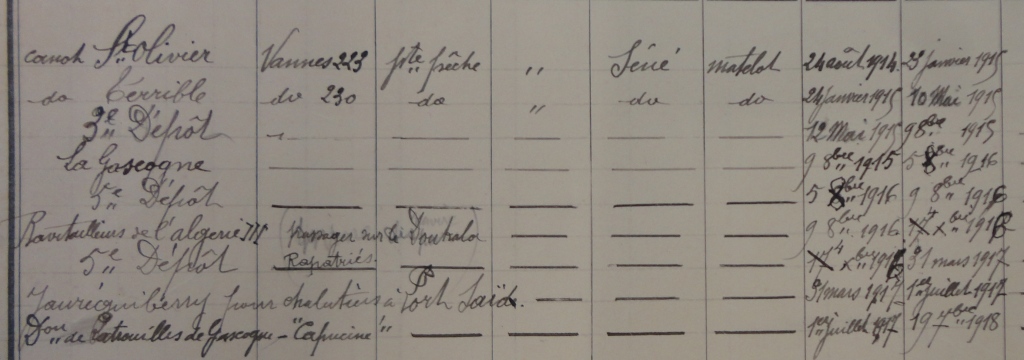 canot St Olivier Vannes 223 pte pêche " Séné matelot 24 août 1914 23 janvier 1915
do Terrible do 230 do " do do 24 janvier 1915 10 Mai 1915
3e Dépôt — — — — — 12 Mai 1915 9 8bre 1915
La Gascogne — — — — — 9 8bre 1915 5 8bre 1916
5e Dépôt — — — — — 5 8bre 1916 9 8bre 1916
Ravitailleurs de l'algerie III (Passager sur le Doukkala — — — 9 8bre 1916 xbre 1916
5e Dépôt Rapatriés. — — — — xbre 1916 31 mars 1917
Jauréguiberry pour chalutiers à Port Saïd. — — — 31 mars 1917 1er juillet 1917
Don de Patrouilles de Gascogne - "Capucine" — — — — 1er juillet 1917 19 7bre 1918